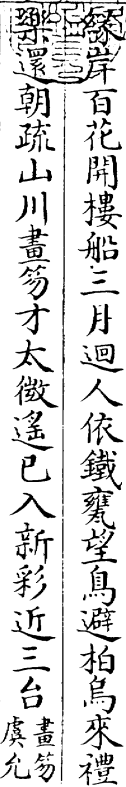 緣岸百花開樓船三月迴人依鐵甕望鳥避柏烏來禮
樂還朝疏山川畫笏才太微遙已入新彩近三台畫笏
虞允